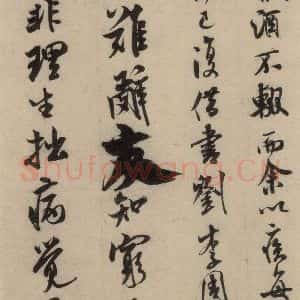 酒不輟而余以疾每
已復借書劉李周
難辭友知窮
非理生拙病覺
Shufawang.cn